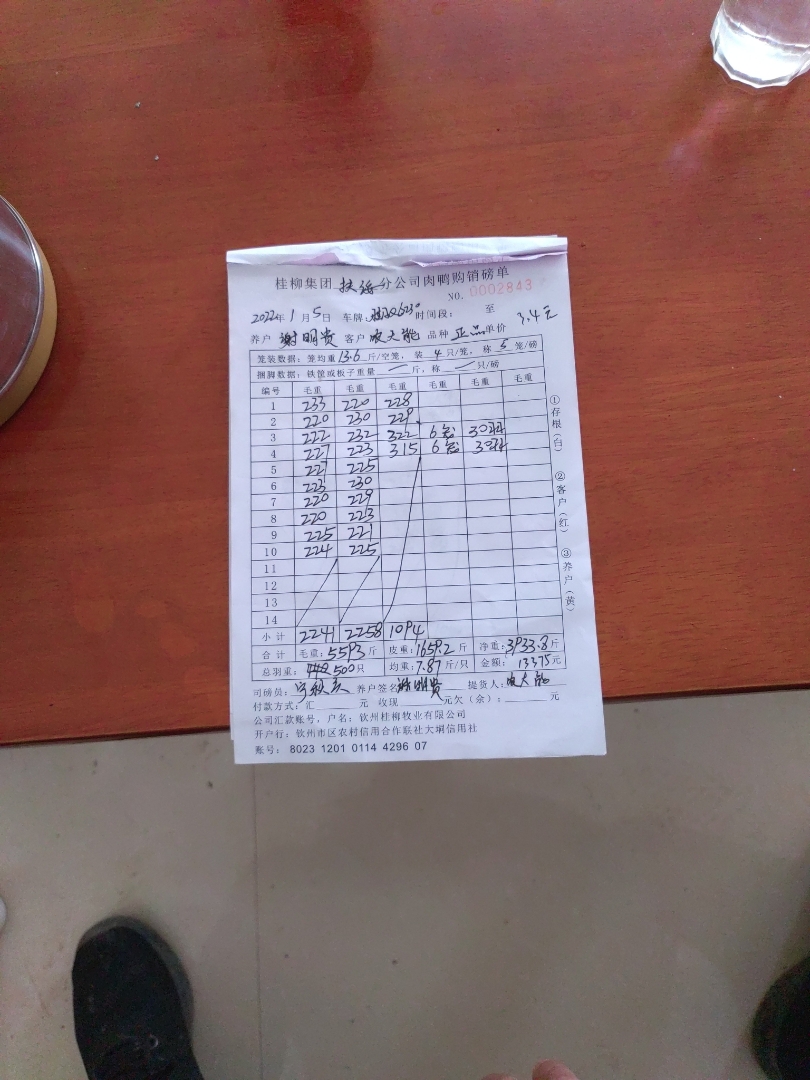 桂柳集团 扶绥 分公司肉鸭购销磅单
NO. 0002843
2022年 1 月 5 日 车牌: 时间段: 至
养户 谢明贵 客户 农大能 品种 正品 单价 3.4元
笼装数据: 笼均重 13.6 斤/空笼, 装 4 只/笼, 称 5 笼/磅
捆脚数据: 铁筐或板子重量 — 斤, 称 — 只/磅
编号 毛重 毛重 毛重 毛重 毛重 毛重
1 233 220 228
2 220 230 229
3 222 232 322 6笼 30只
4 227 223 315 6笼 30只
5 227 225
6 223 230
7 220 229
8 220 223
9 225 221
10 224 225
11
12
13
14
小计 2241 2258 1094
合计 毛重: 5593 斤 皮重: 1659.2 斤 净重: 3933.8 斤
总羽重: 500 只 均重: 7.87 斤/只 金额: 13375 元
司磅员: 养户签名 谢明贵 提货人: 农大能
付款方式: 汇 元 收现 元欠(余): 元
公司汇款账号, 户名: 钦州桂柳牧业有限公司
开户行: 钦州市区农村信用合作联社大垌信用社
账号: 8023 1201 0114 4296 07
①存根(白) ②客户(红) ③养户(黄)